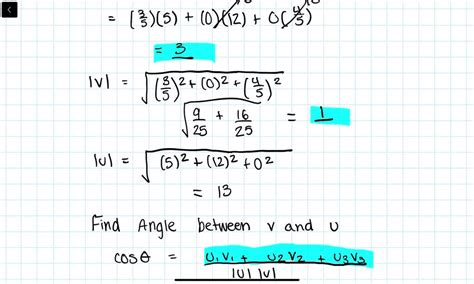 = (3/5)(5) + (0)(12) + 0(4/5)
= 3
|v| = √((3/5)² + (0)² + (4/5)²)
√(9/25 + 16/25) = 1
|u| = √((5)² + (12)² + 0²)
= 13
Find Angle between v and u
cosθ = (u₁v₁ + u₂v₂ + u₃v₃)/(|u| |v|)